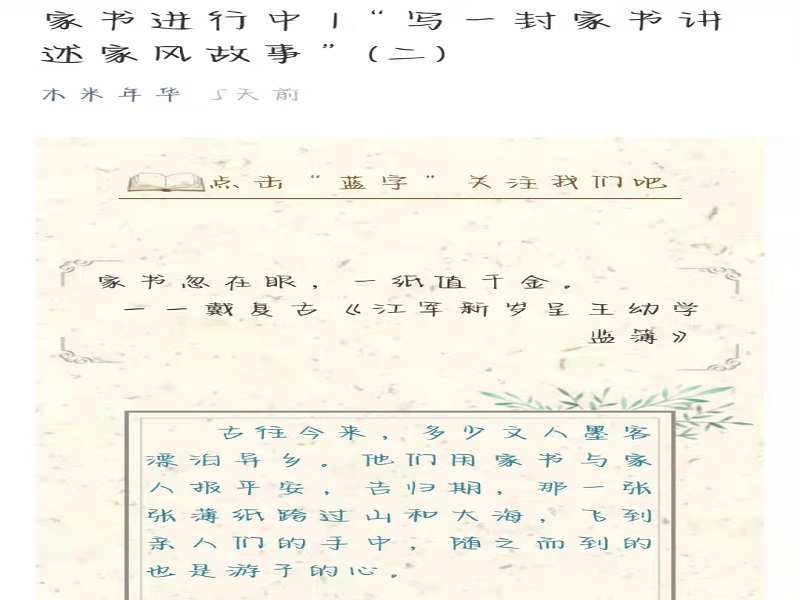 家书进行中|“写一封家书讲
述家风故事”(二)
木米年华 5天前
点击“蓝字”关注我们吧
家书忽在眼，一纸值千金。
一一戴复古《江军新岁呈王幼学
监簿》
古往今来，多少文人墨客
漂泊异乡。他们用家书与家
人报平安，告归期，那一张
张薄纸跨过山和大海，飞到
亲人们的手中，随之而到的
也是游子的心。